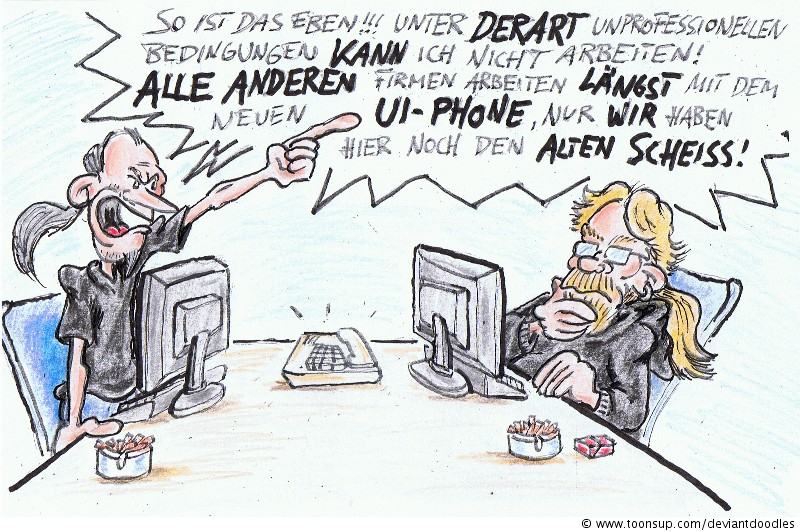 SO IST DAS EBEN!!! UNTER DERART UNPROFESSIONELLEN
BEDINGUNGEN KANN ICH NICHT ARBEITEN!
ALLE ANDEREN FIRMEN ARBEITEN LÄNGST MIT DEM
NEUEN UI-PHONE, NUR WIR HABEN
HIER NOCH DEN ALTEN SCHEISS!
© www.toonsup.com/deviantdoodles